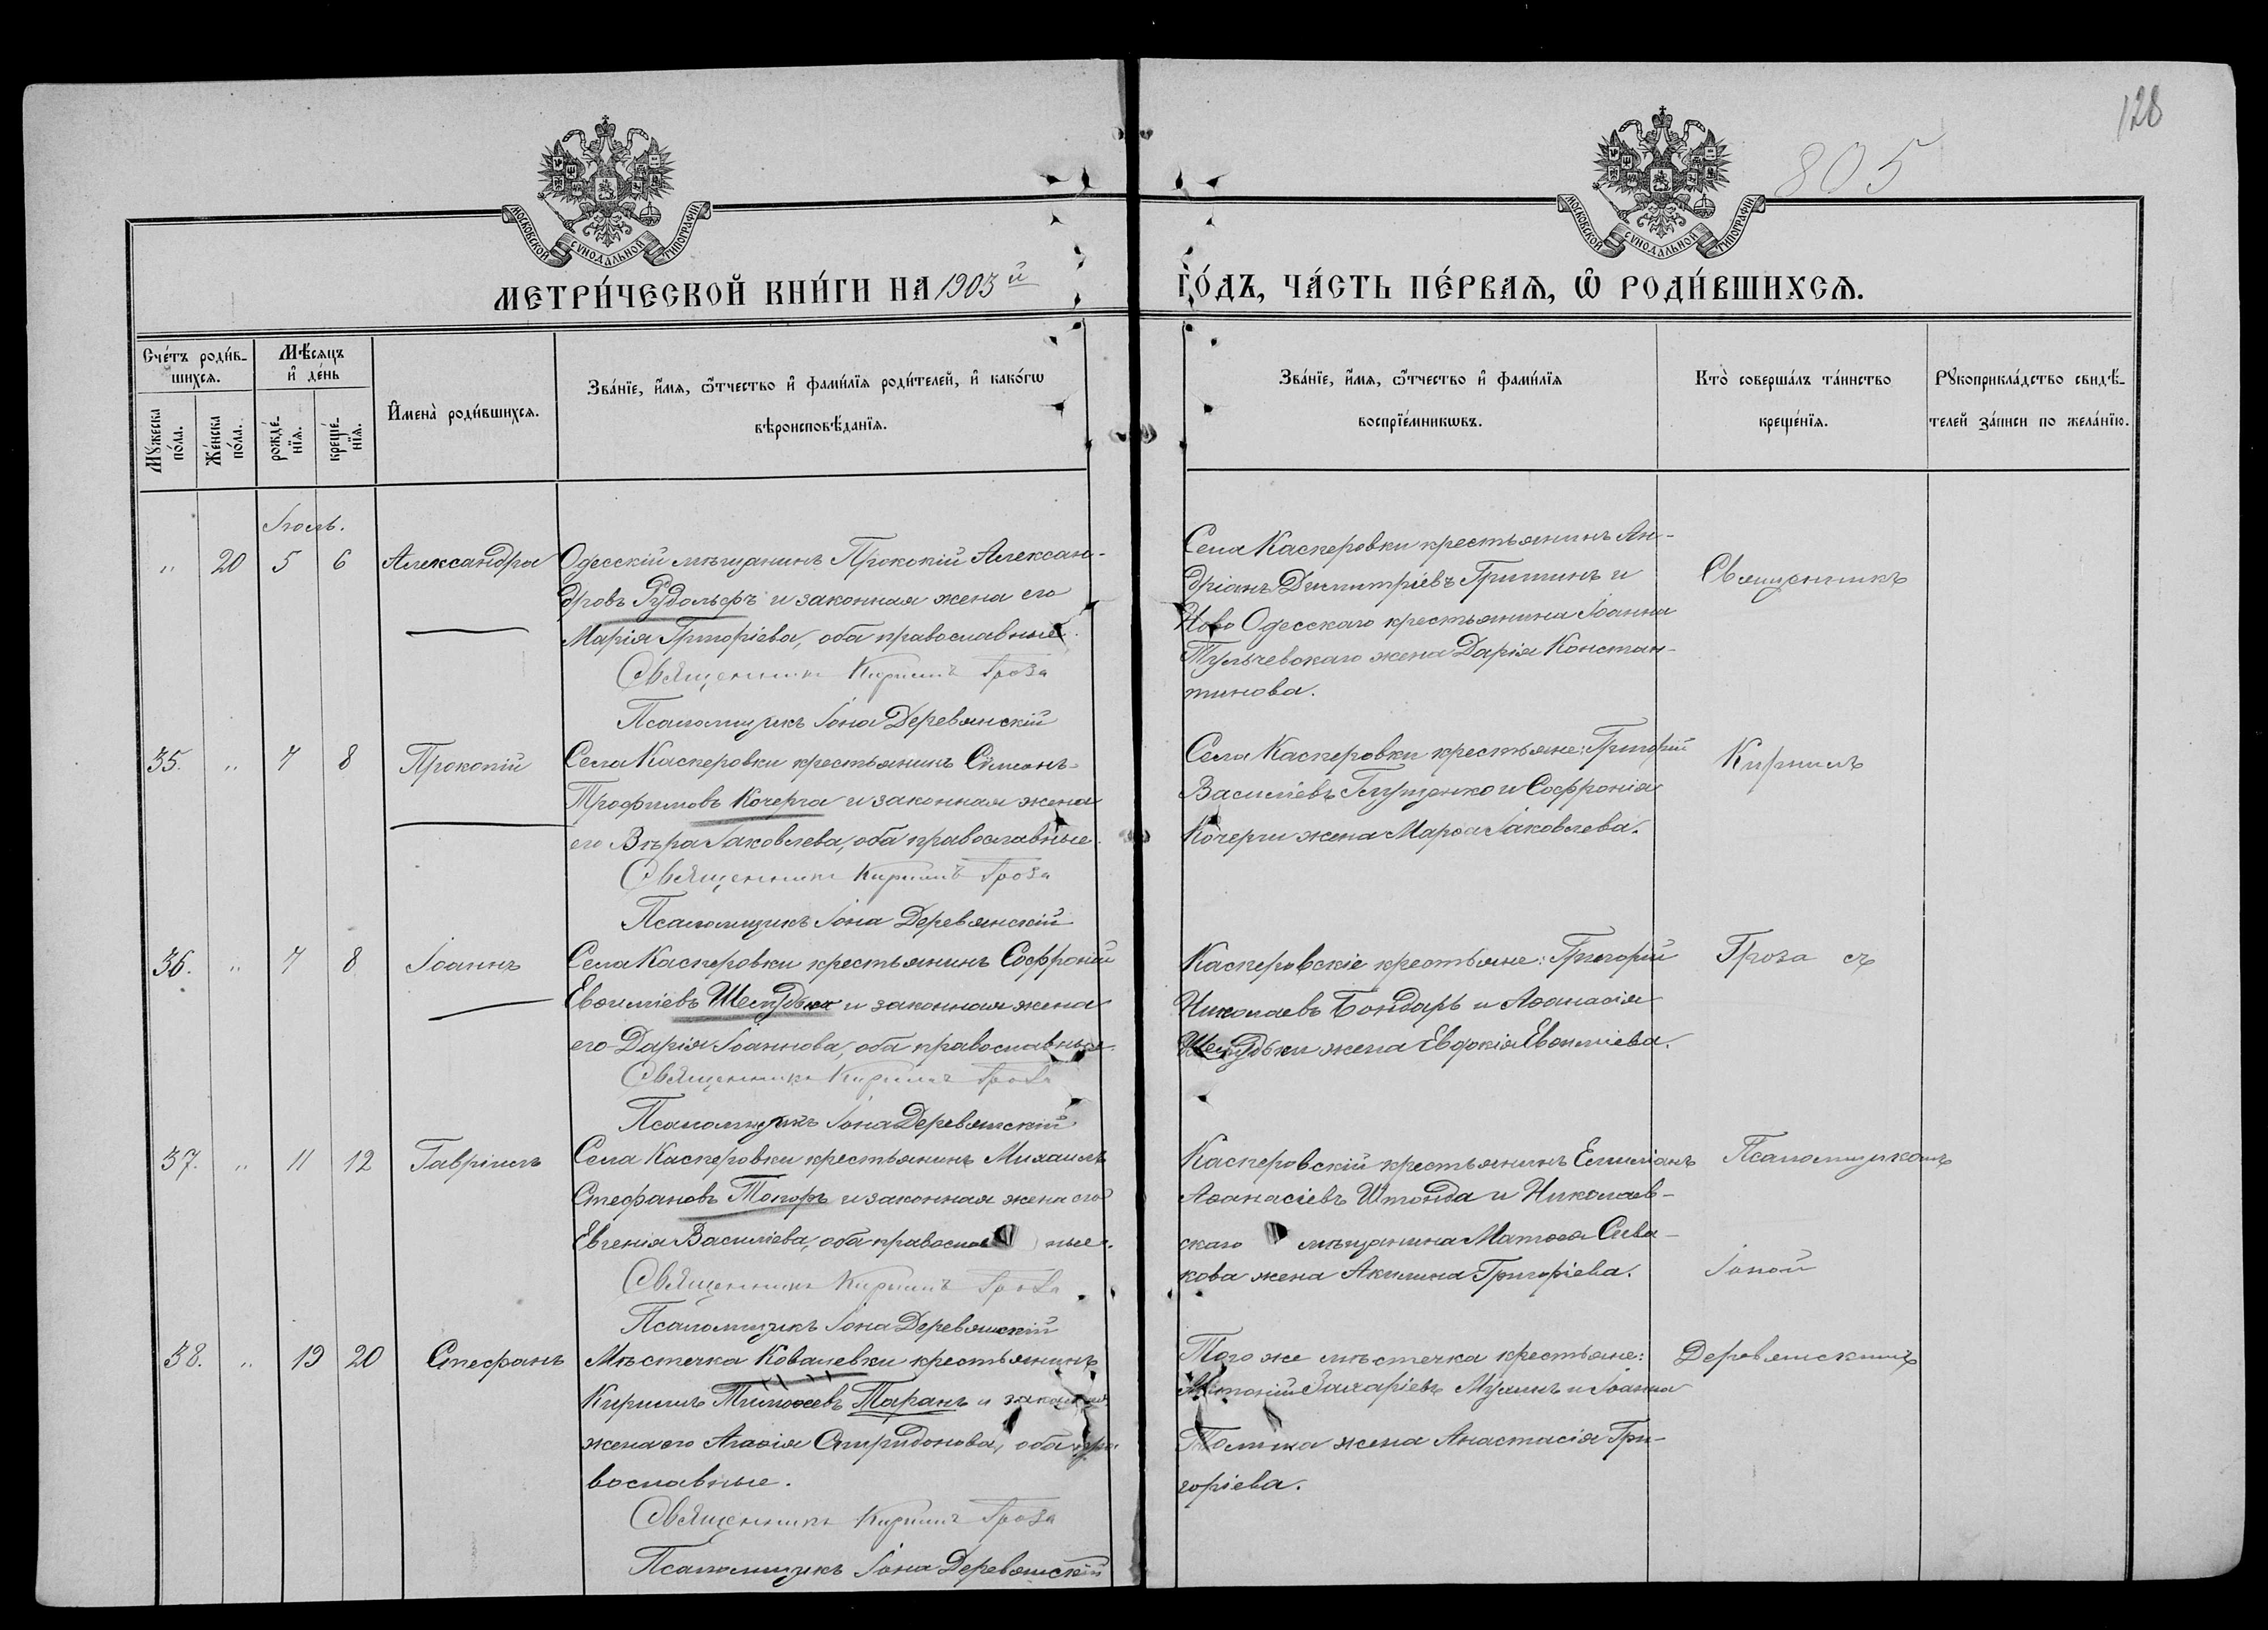 128
805
МОСКОВСКОЙ СѴНОДАЛЬНОЙ ТИПОГРАФІИ
МОСКОВСКОЙ СѴНОДАЛЬНОЙ ТИПОГРАФІИ
МЕТРИ́ЧЕСКОЙ КНИ́ГИ НА 1903й
ГО́ДЪ, ЧА́СТЬ ПЕ́РВАѦ, Ѡ҆ РОДИ́ВШИХСѦ.
Сче́тъ роди́в-
шихсѧ.
Мѣ́сѧцъ
и҆ де́нь
Мꙋ́жеска
по́ла.
Же́нска
по́ла.
рожде́-
нїѧ.
креще́-
нїѧ.
И҆мена̀ роди́вшихсѧ.
Зва́нїе, и҆́мѧ, ѻ҆́тчество и҆ фами́лїѧ роди́телей, и҆ како́гѡ
вѣроисповѣ́данїѧ.
Зва́нїе, и҆́мѧ, ѻ҆́тчество и҆ фами́лїѧ
воспрїе́мникѡвъ.
Кто̀ соверша́лъ та́инство
креще́нїѧ.
Рꙋкоприкла́дство свидѣ́-
телей за́писи по жела́нїю.
Іюль.
" 20 5 6 Александра
Одесскій мѣщанинъ Прокопій Алексан-
дровъ Рудольфъ и законная жена его
Марія Григоріева, оба православные.
Священникъ Кириллъ Гроза
Псаломщикъ Іона Деревянскій
Села Касперовки крестьянинъ Ан-
дріанъ Димитріевъ Гришинъ и
Ново Одесскаго крестьянина Іоанна
Тульчевскаго жена Дарія Констан-
тинова.
Священникъ
35. " 7 8 Прокопій
Села Касперовки крестьянинъ Симеонъ
Трофимовъ Кочерга и законная жена
его Вѣра Іаковлева, оба православные.
Священникъ Кириллъ Гроза
Псаломщикъ Іона Деревянскій
Села Касперовки крестьяне: Григорій
Василіевъ Глущенко и Софронія
Кочерги жена Марѳа Іаковлева.
Кириллъ
36. " 7 8 Іоаннъ
Села Касперовки крестьянинъ Софроній
Евѳиміевъ и законная жена
его Дарія Іоаннова, оба православные.
Священникъ Кириллъ Гроза
Псаломщикъ Іона Деревянскій
Касперовскіе крестьяне: Григорій
Николаевъ Бондарь и Аѳанасія
жена Евдокія Евѳиміева.
Гроза съ
37. " 11 12 Гавріилъ
Села Касперовки крестьянинъ Михаилъ
Стефановъ Топоръ и законная жена его
Евгенія Василіева, оба православные.
Священникъ Кириллъ Гроза
Псаломщикъ Іона Деревянскій
Касперовскій крестьянинъ Емиліанъ
Аѳанасіевъ Штонда и Николаев-
скаго мѣщанина Матѳея Сива-
кова жена Акилина Григоріева.
Псаломщикомъ
Іоной
38. " 19 20 Стефанъ
Мѣстечка Ковалевки крестьянинъ
Кириллъ Тимоѳеевъ Таранъ и законная
жена его Агаѳія Спиридонова, оба пра-
вославные.
Священникъ Кириллъ Гроза
Псаломщикъ Іона Деревянскій
Того же мѣстечка крестьяне:
Антоній Захаріевъ и Іоанна
жена Анастасія Гри-
горіева.
Деревянскимъ